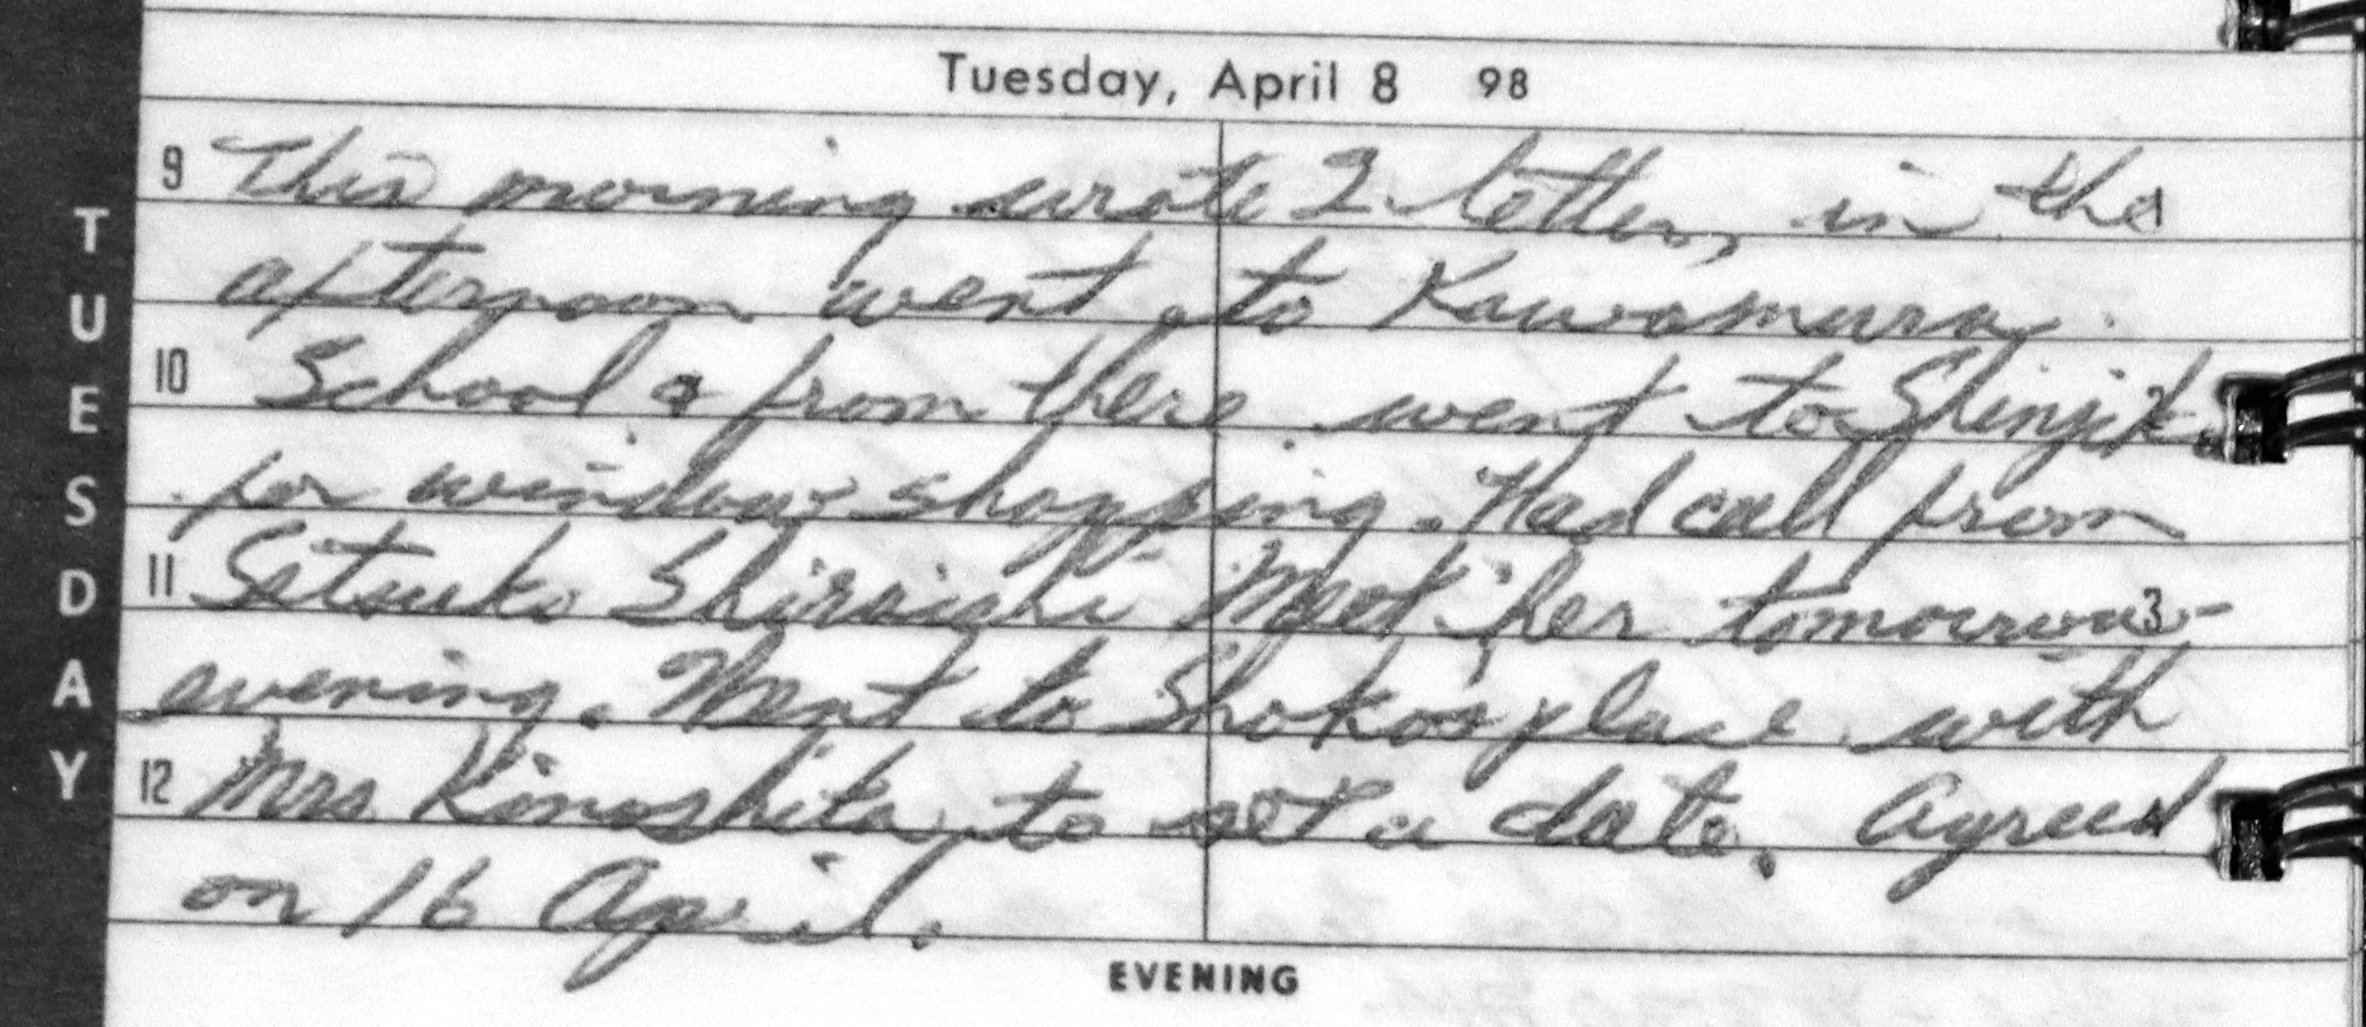 Tuesday, April 8 98
TUESDAY
9 This morning wrote 2 letters, in the 1
afternoon went to Kawamura
10 School & from there went to Shinjuku 2
for window shopping. Had call from
11 Setsuko Shiraishi Meet her tomorrow 3
evening. Went to Shoko's place with
12 Mrs Kinoshita to set a date. Agreed
on 16 April.
EVENING